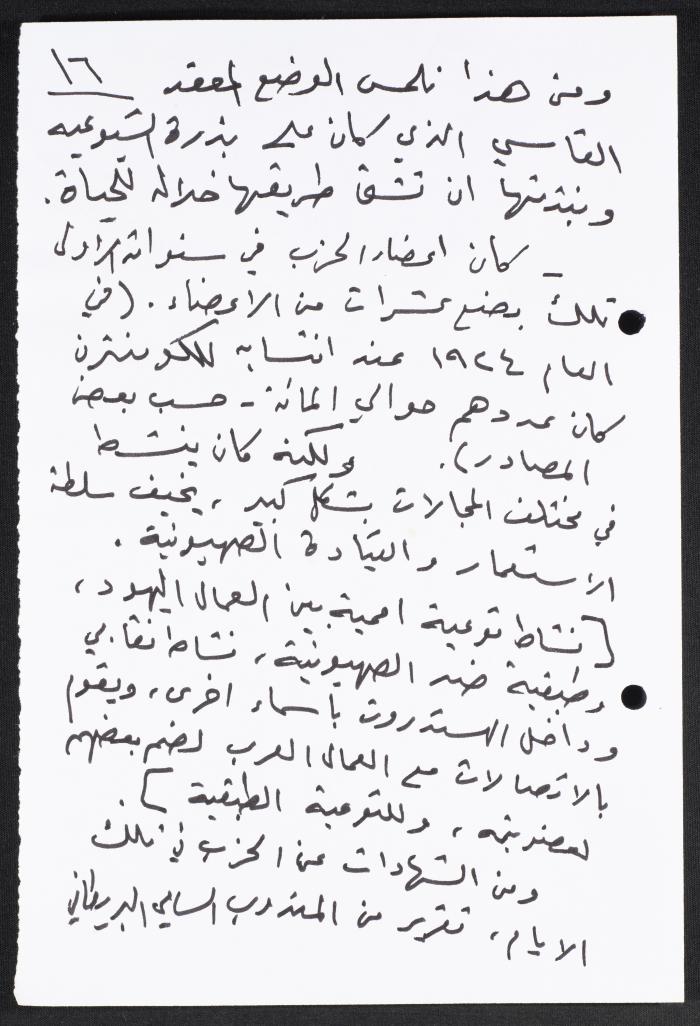 ١٦
ومن هذا نلمس الوضع المعقد
القاسي الذي كان على بذرة الشيوعيه
ونبتتها ان تشق طريقها خلاله للحياة.
_ كان اعضاء الحزب في سنواته الاولى
تلك بضع عشرات من الاعضاء. (في
العام ١٩٢٤ عند انتسابه للكومنترن
كان عددهم حوالي المائة - حسب بعض
المصادر). ولكنه كان ينشط
في مختلف المجالات بشكل كبير، يخيف سلطة
الاستعمار والقيادة الصهيونية.
[نشاط توعية اممية بين العمال اليهود،
وطبقية ضد الصهيونية، نشاط نقابي
وداخل الهستدروت بأسماء اخرى، ويقوم
بالاتصالات مع العمال العرب لضم بعضهم
لعضويته، وللتوعية الطبقية].
ومن الشهادات عن الحزب في تلك
الايام، تقرير من المندوب السامي البريطاني